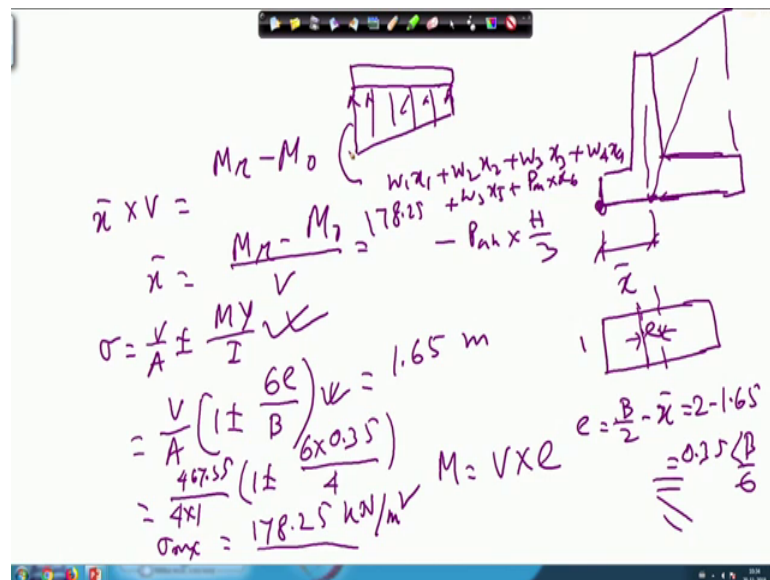 M_R - M_0
x̄ × V =
W_1x_1 + W_2x_2 + W_3x_3 + W_4x_4
+ W_5x_5 + P_av × x_6
- P_ah × H/3
x̄ = (M_R - M_0)/V =
178.25
= 1.65 m
x̄
σ = V/A ± MY/I
= V/A (1 ± 6e/B)
= 467.55/4×1 (1 ± 6×0.35/4)
σ_max = 178.25 kN/m²
M = V×e
1
e
e = B/2 - x̄ = 2 - 1.65
= 0.35 < B/6